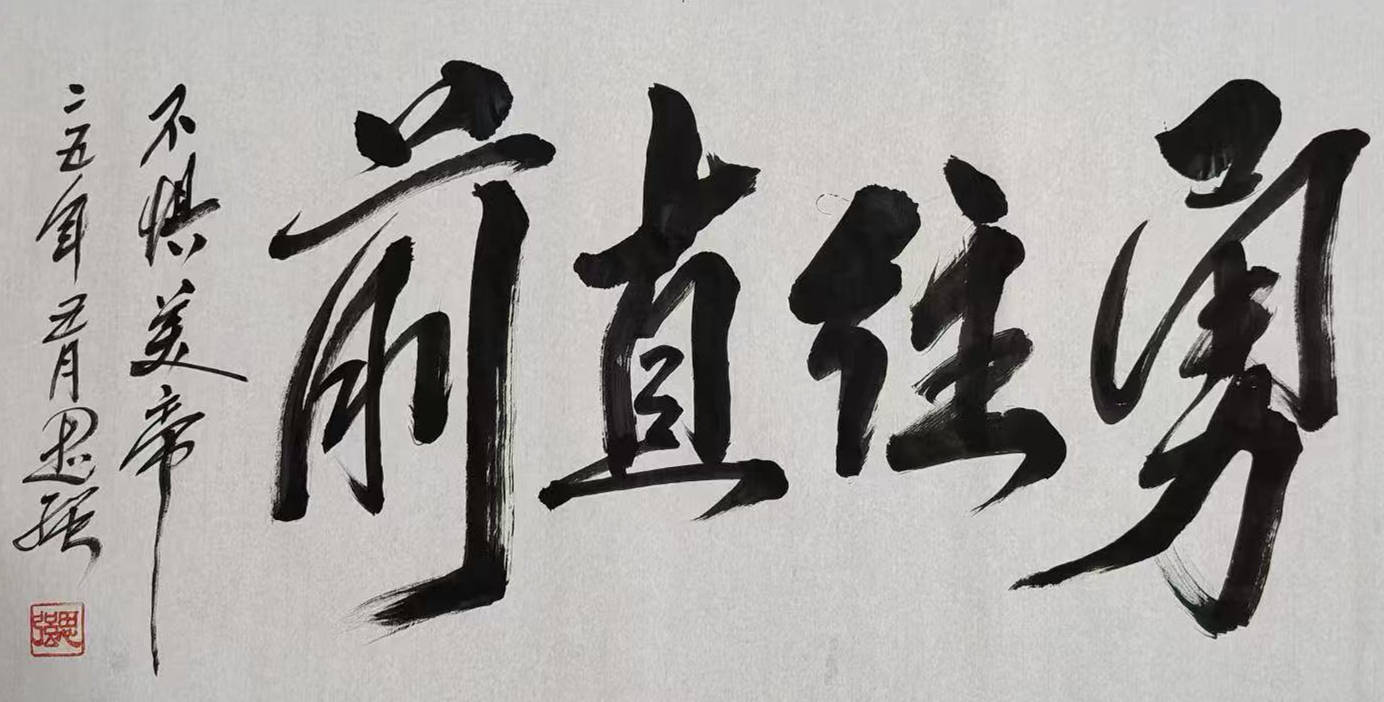 勇往直前
不惧美帝
二五年五月思强
思强